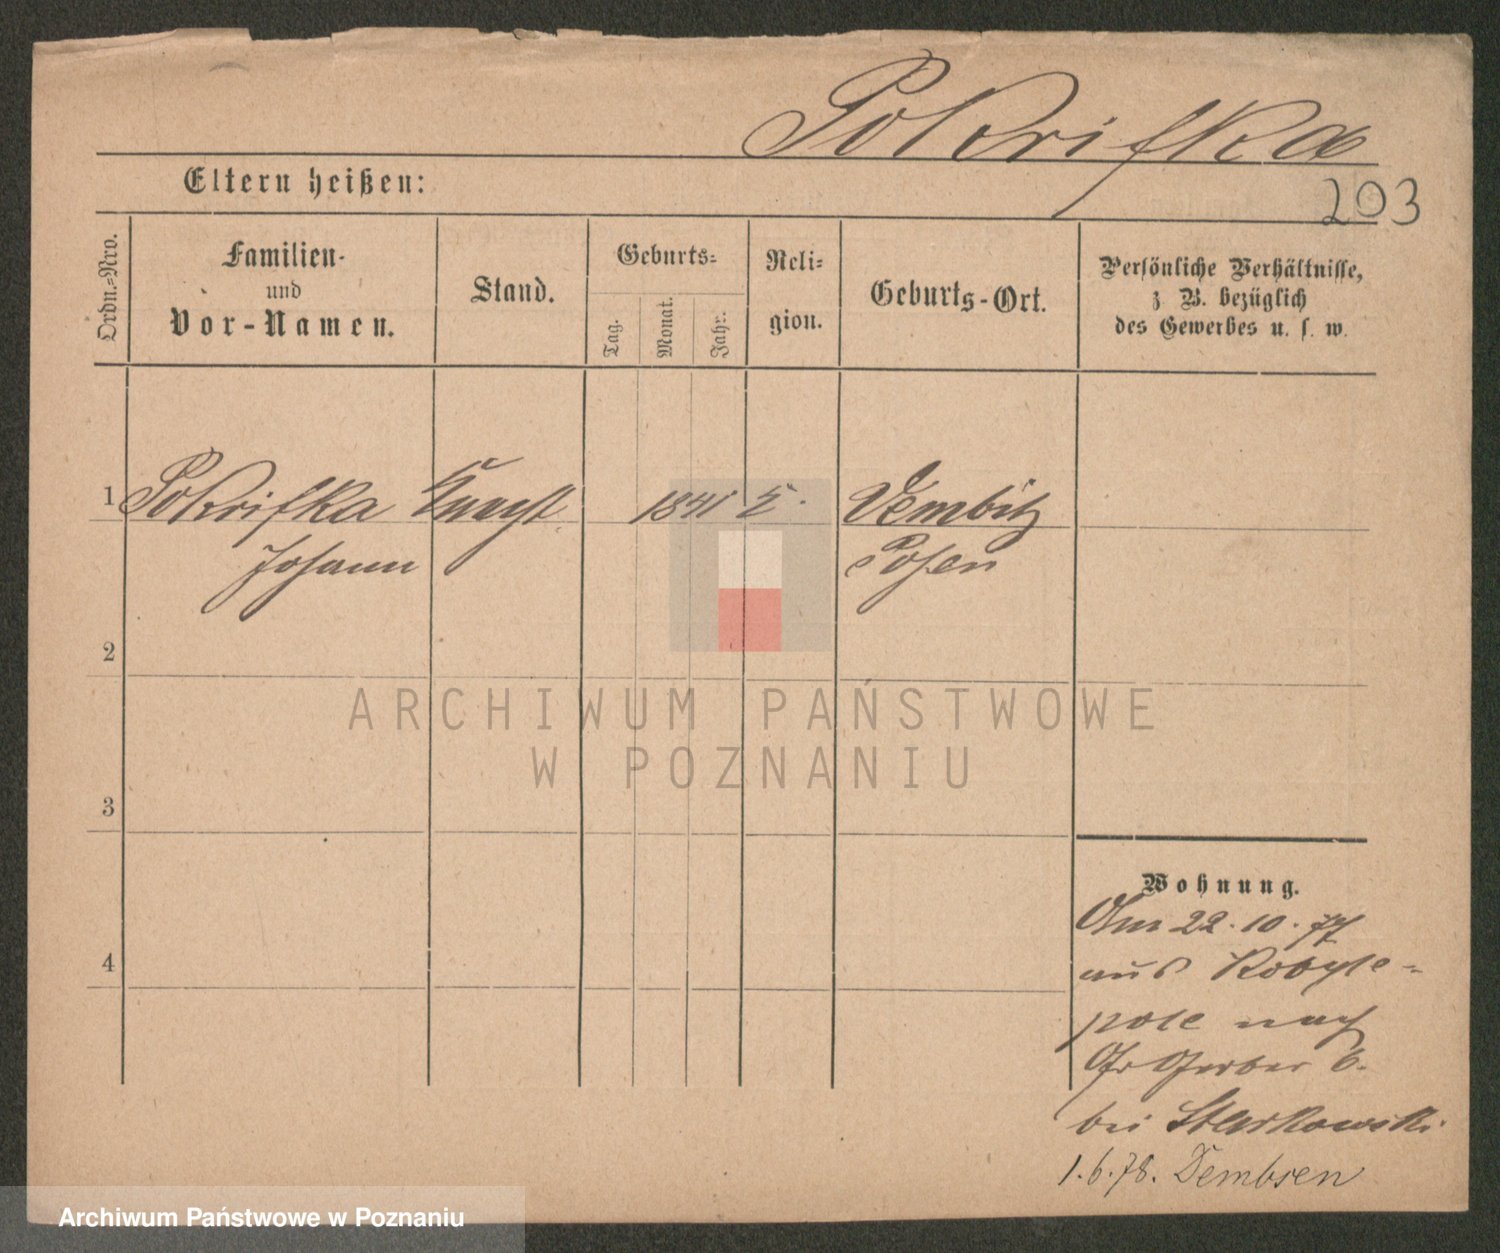 Pokrifka
203
Eltern heißen:
Ordn.-Nro.
Familien-
und
Vor-Namen.
Stand.
Geburts-
Tag.
Monat.
Jahr.
Reli-
gion.
Geburts-Ort.
Persönliche Verhältnisse,
z B. bezüglich
des Gewerbes u. s. w.
1 Pokrifka Knecht 1841 Dembitz
Johann Posen
2
3
4
ARCHIWUM PAŃSTWOWE
W POZNANIU
Wohnung.
22.10.77
aus Kobyle-
pole nach
Gr Gerber 6.
bei
1.6.78. Dembsen
Archiwum Państwowe w Poznaniu